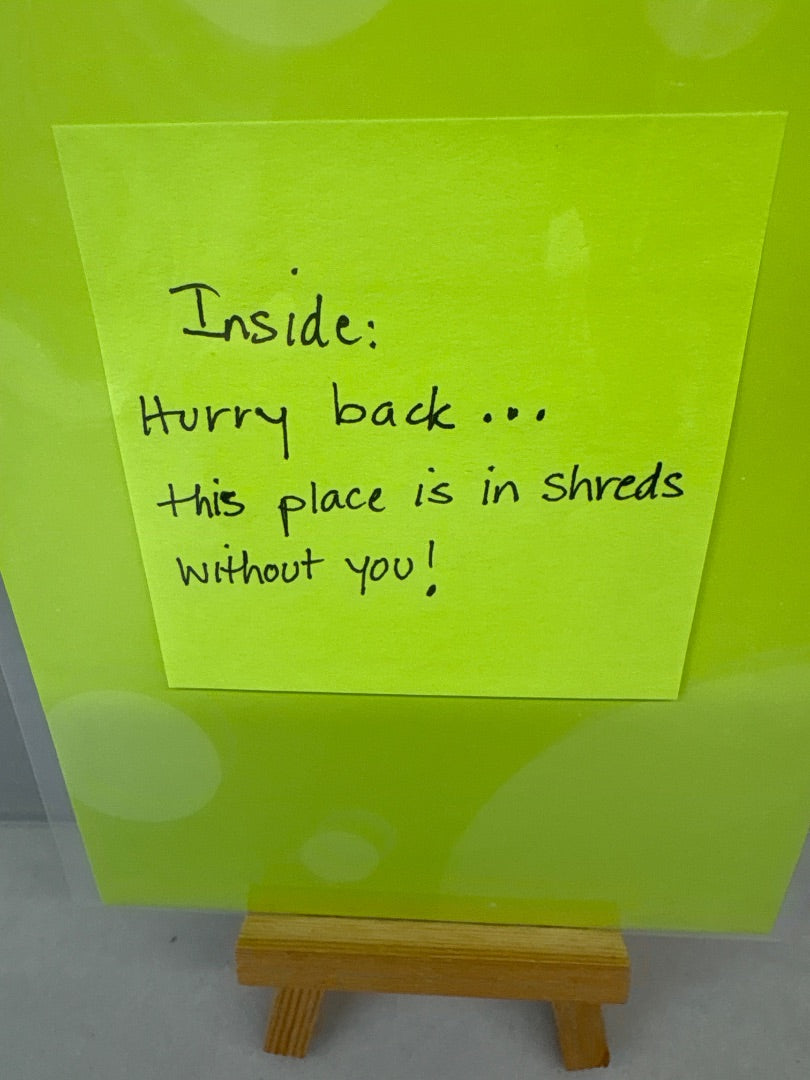 Inside:
Hurry back...
this place is in shreds
without you!